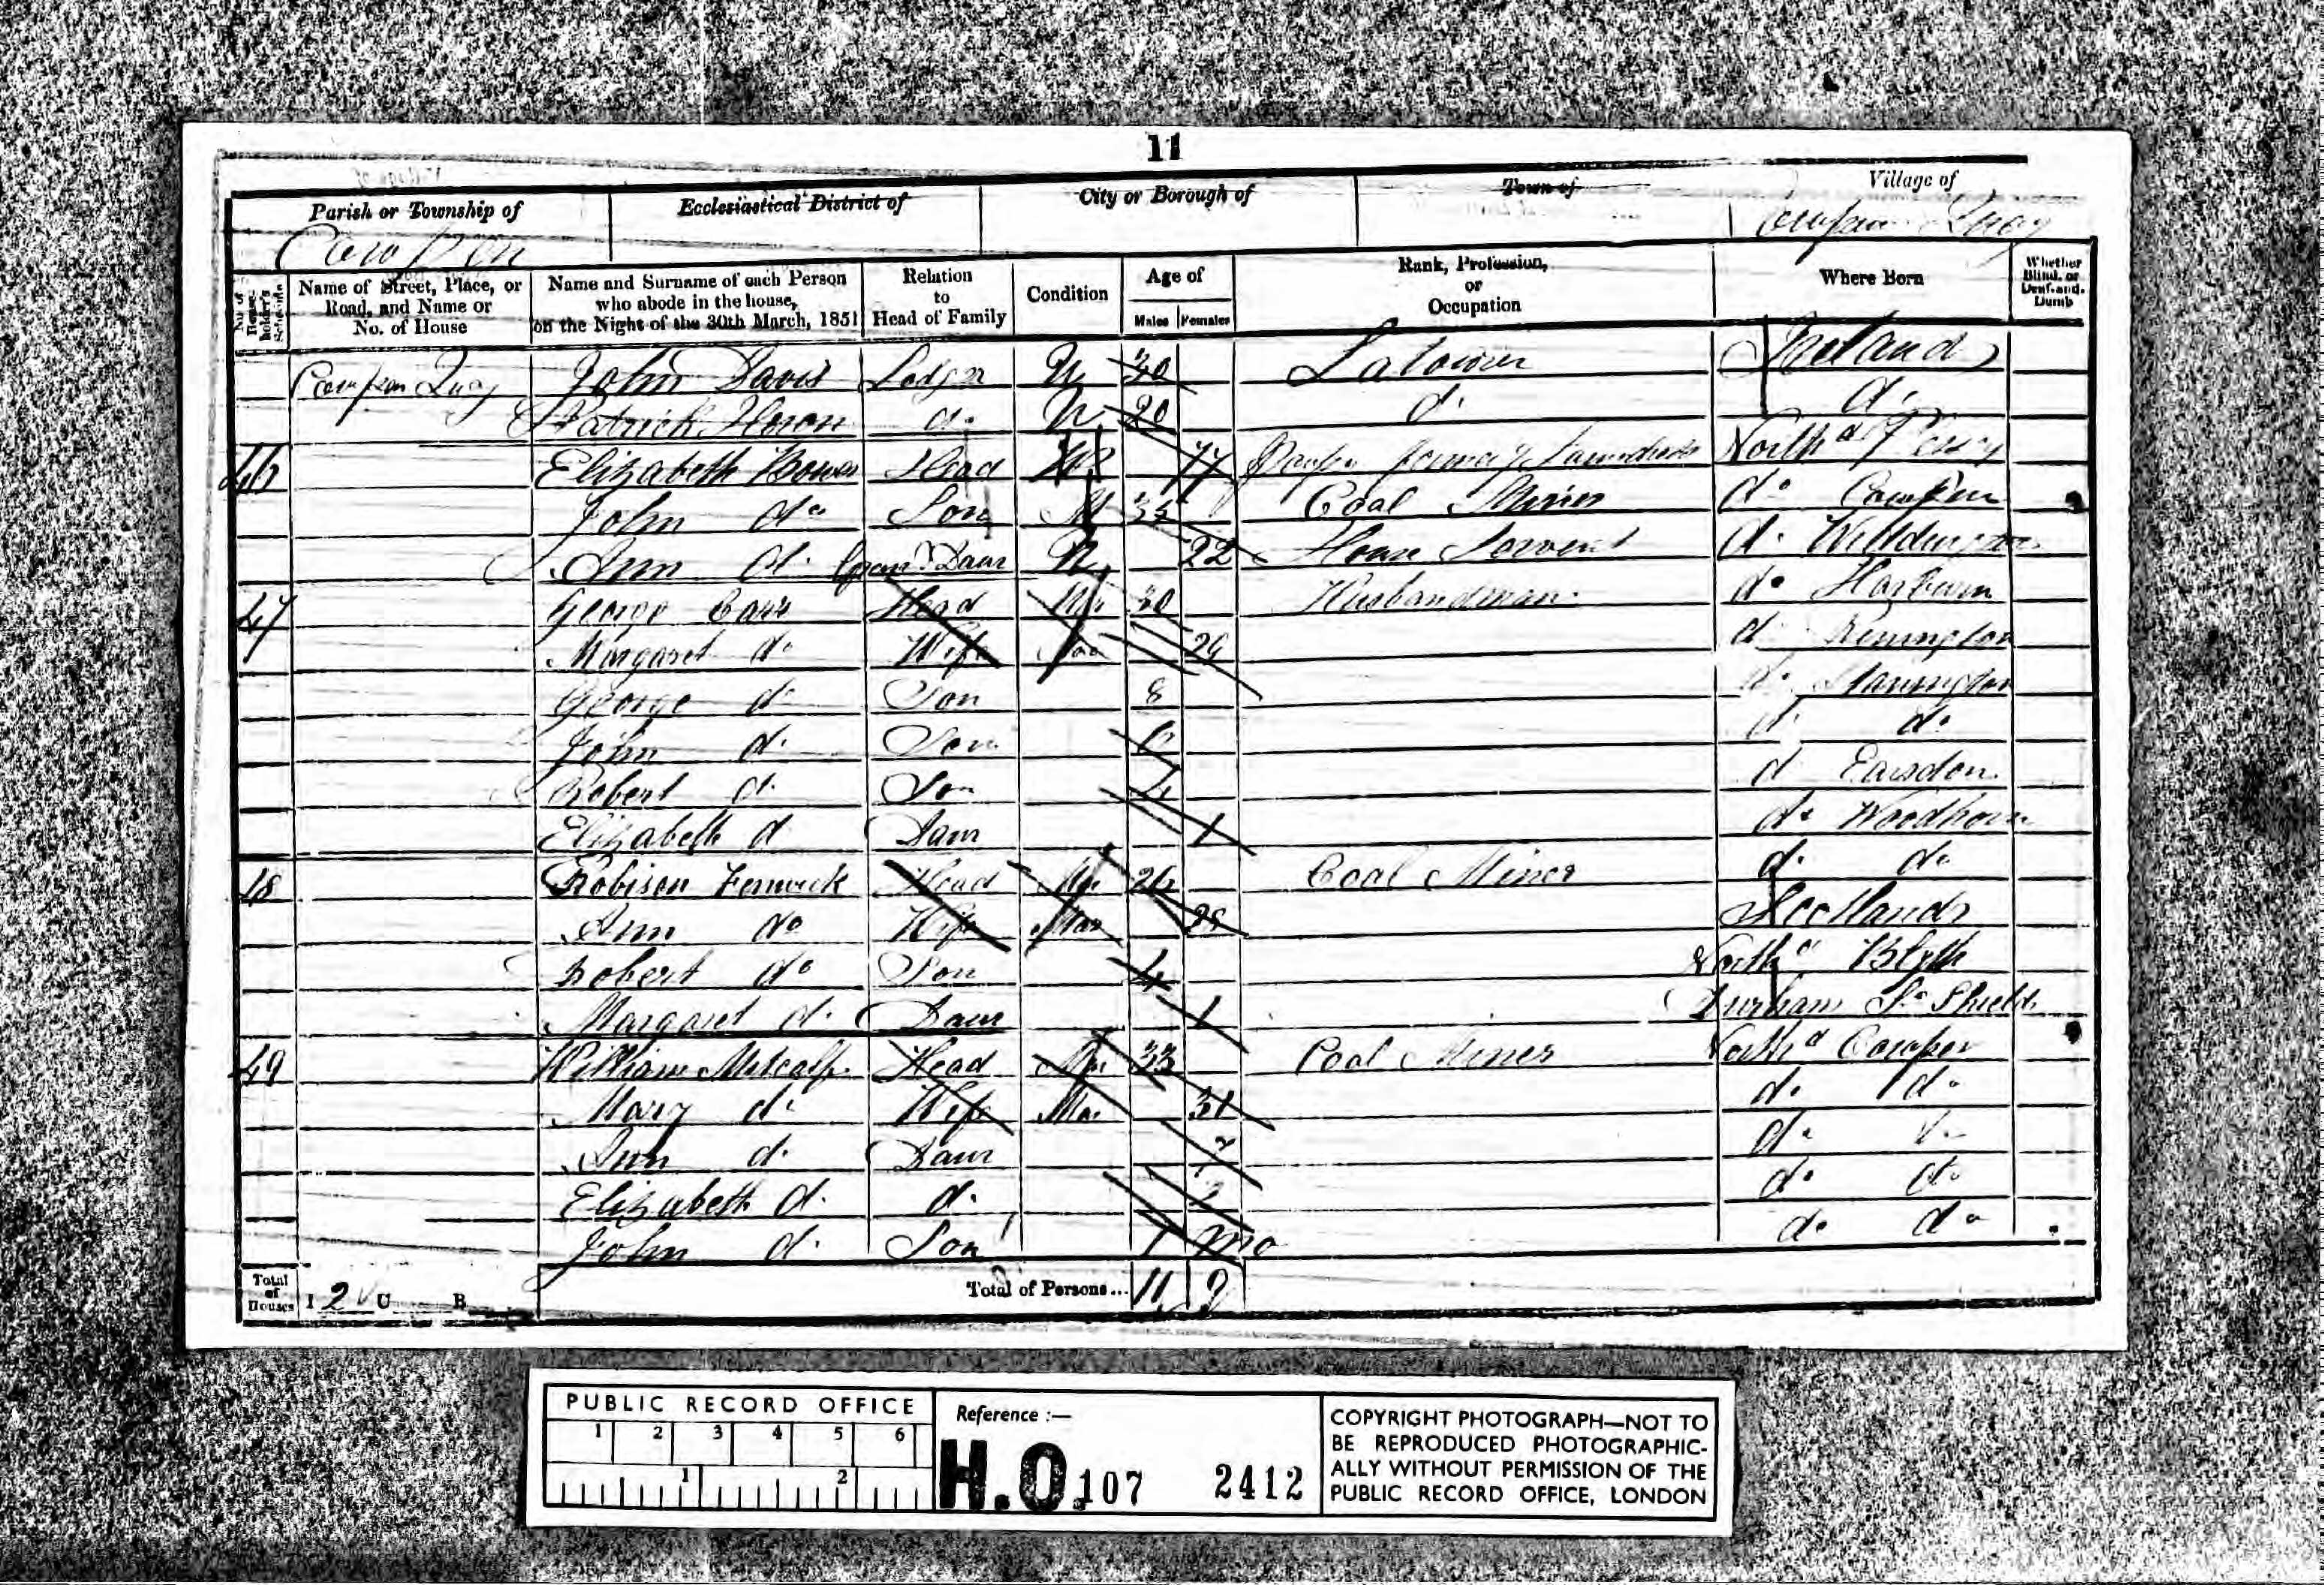 11
Parish or Township of
Ecclesiastical District of
City or Borough of
Town of
Village of
Cowpen
Cowpen Quay
No. of House-holder's Schedule
Name of Street, Place, or Road, and Name or No. of House
Name and Surname of each Person who abode in the house, on the Night of the 30th March, 1851
Relation to Head of Family
Condition
Age of
Males Females
Rank, Profession, or Occupation
Where Born
Whether Blind, or Deaf-and-Dumb
Cowpen Quay John Davis Lodger U 30 Labourer Ireland
Patrick Heron do. U 20 do. do.
46 Elizabeth Head 77 Pauper formerly North'd
John do Son 35 Coal Miner do Cowpen
Ann do. Gran Daur U 22 House Servent do. Widdrington
47 George Carr Head Mar 30 Husbandman do Hartburn
Margaret do Wife Mar 29 do
George do Son 8 do Stannington
John do. Son 6 do do.
Robert do. Son 4 do Earsdon
Elizabeth do Daur 1 do Woodhorn
48 Robison Fenwick Head Mar 26 Coal Miner do. do
Ann do Wife Mar Scotland
Robert do Son 4 North'd Blyth
Margaret do. Daur 1 Durham So Shields
49 William Metcalf Head Mar 33 Coal Miner North'd Cowpen
Mary do Wife Mar 31 do. do.
Ann do. Daur do. do.
Elizabeth do. do. do. do.
John do. Son 1 mo do. do
Total of Houses I 2 U B
Total of Persons... 11 9
PUBLIC RECORD OFFICE
1 2 3 4 5 6
1 2
Reference :—
H.O. 107 2412
COPYRIGHT PHOTOGRAPH—NOT TO
BE REPRODUCED PHOTOGRAPHIC-
ALLY WITHOUT PERMISSION OF THE
PUBLIC RECORD OFFICE, LONDON